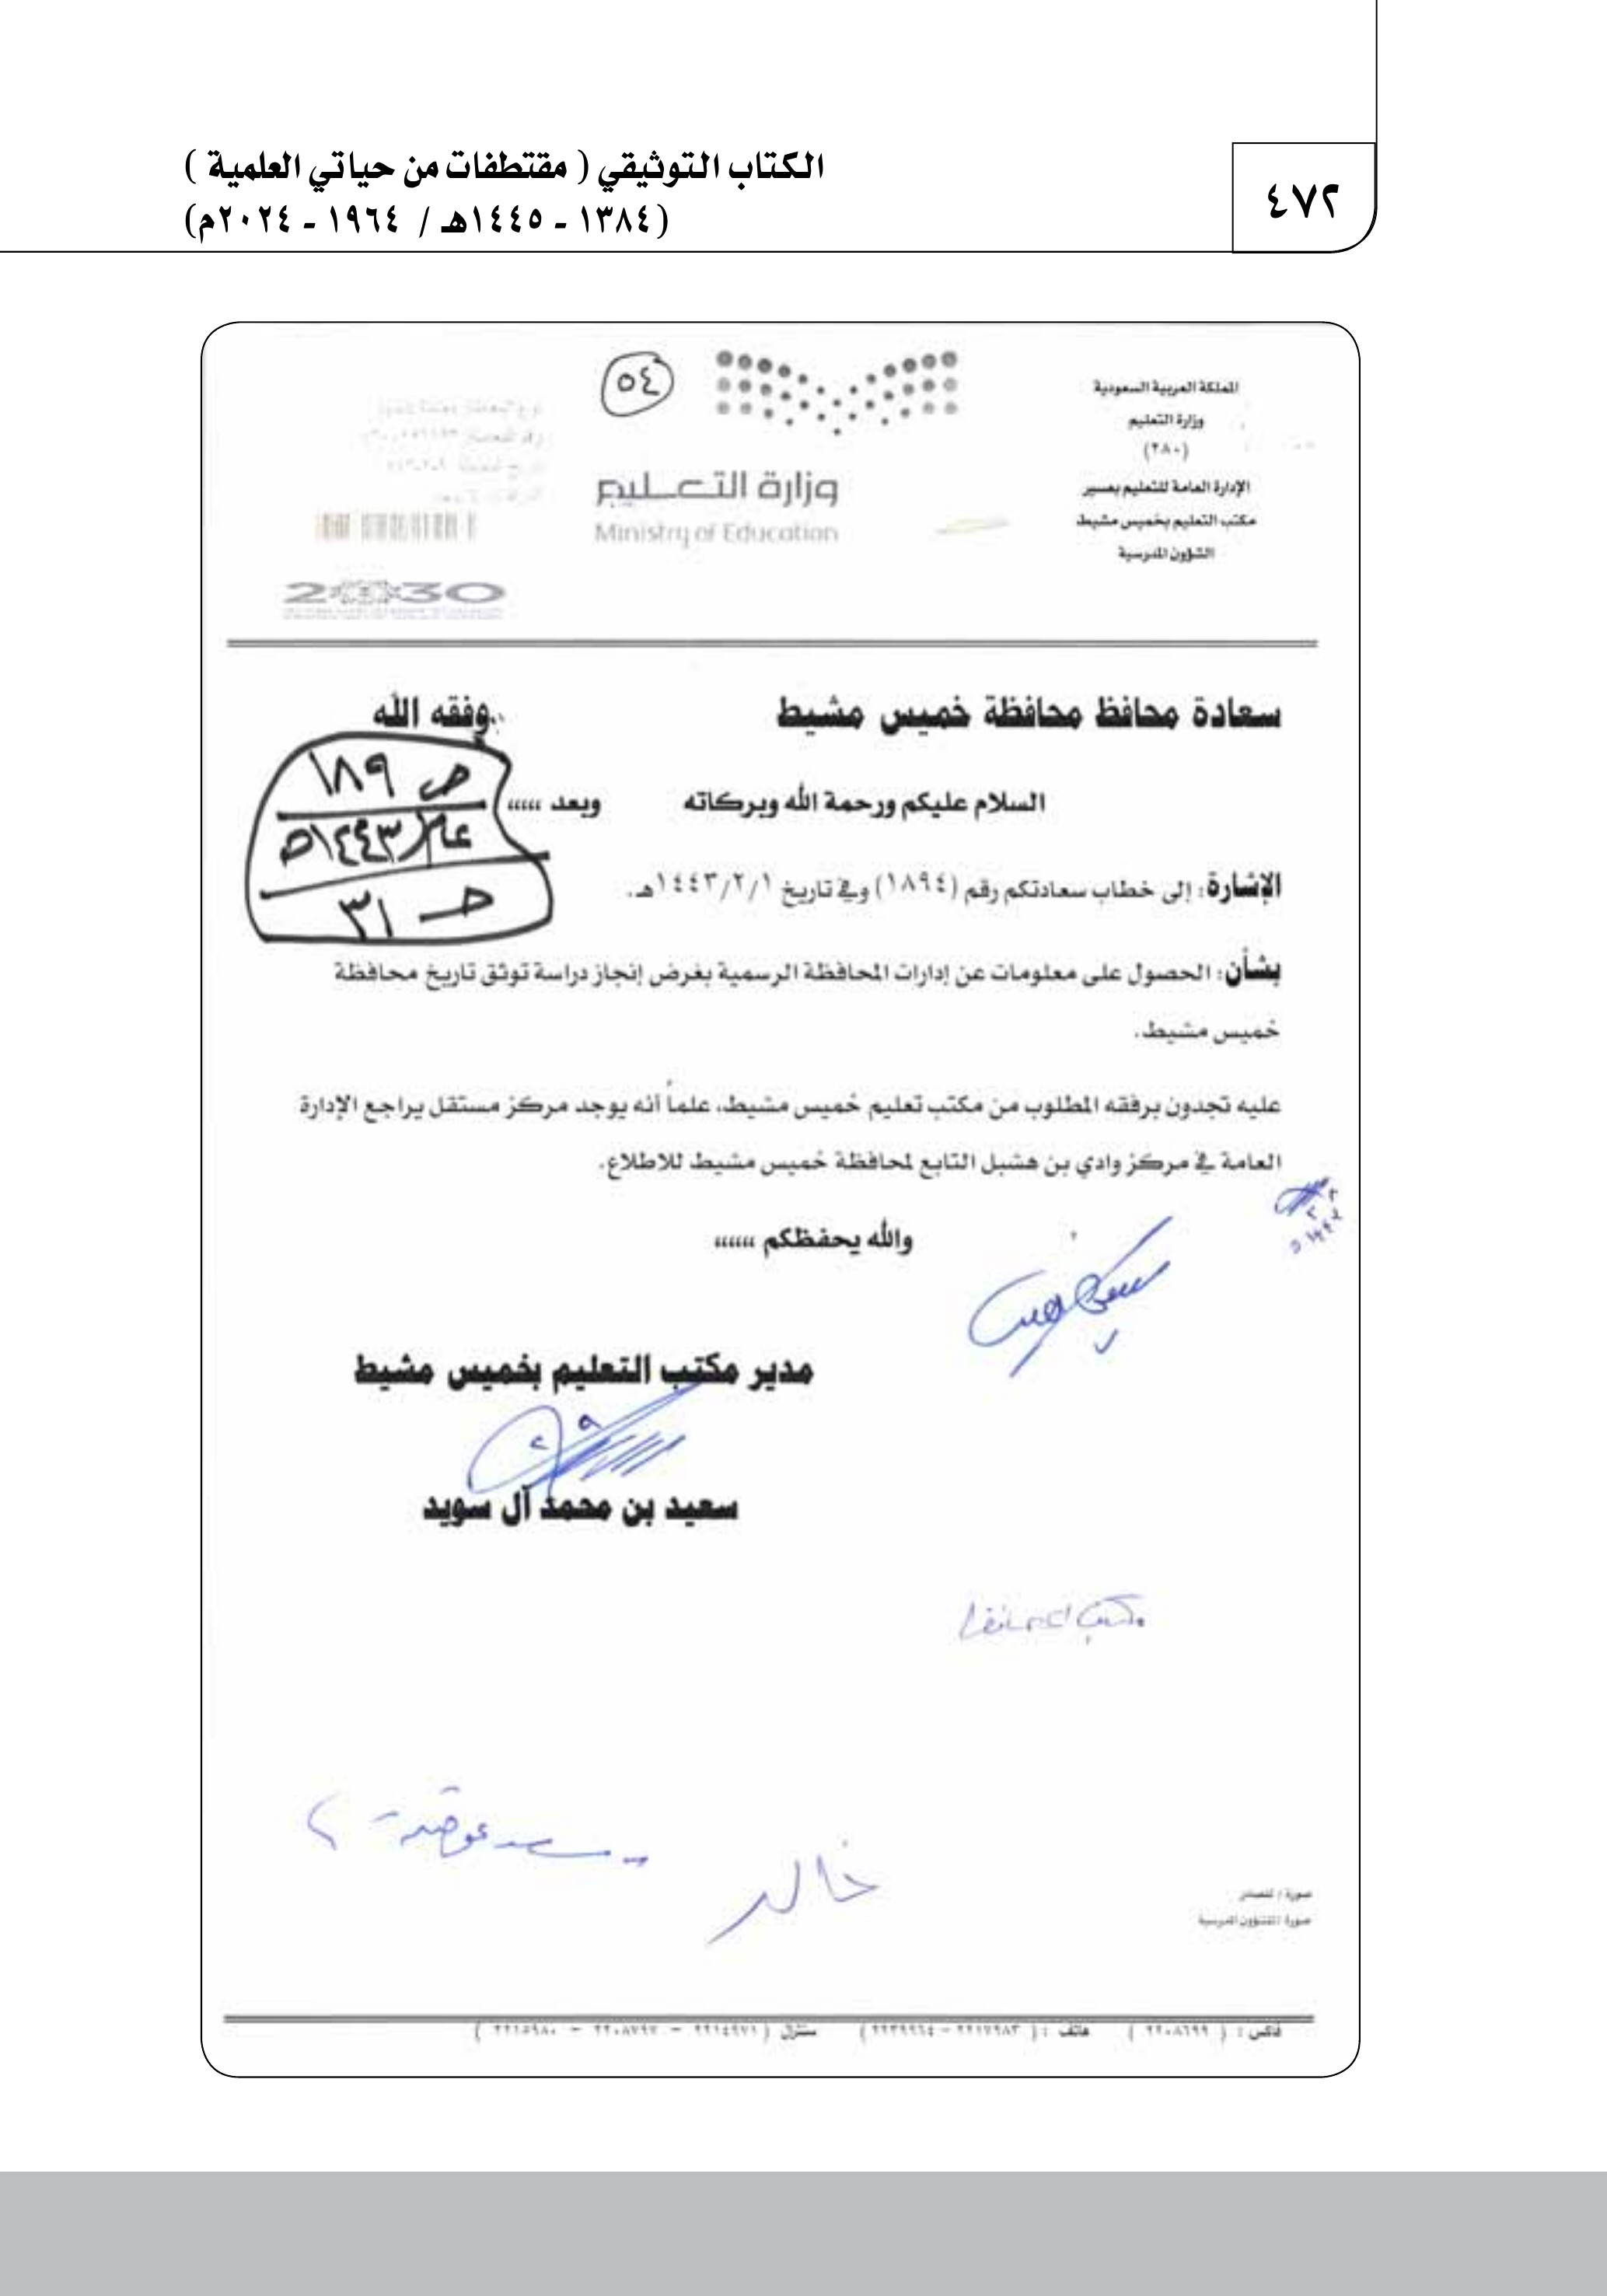 ٤٧٢
الكتاب التوثيقي ( مقتطفات من حياتي العلمية )
(١٣٨٤ - ١٤٤٥هـ / ١٩٦٤ - ٢٠٢٤م)
المملكة العربية السعودية
وزارة التعليم
(٢٨٠)
الإدارة العامة للتعليم بعسير
مكتب التعليم بخميس مشيط
الشؤون المدرسية
٥٤
وزارة التعليم
Ministry of Education
2030
سعادة محافظ محافظة خميس مشيط وفقه الله
السلام عليكم ورحمة الله وبركاته وبعد ،،،،،
ص ١٨٩
عام ١٤٤٣هـ
حـ ٣١
الإشارة: إلى خطاب سعادتكم رقم (١٨٩٤) وفي تاريخ ١٤٤٣/٢/١هـ.
بشأن: الحصول على معلومات عن إدارات المحافظة الرسمية بغرض إنجاز دراسة توثق تاريخ محافظة
خميس مشيط.
عليه تجدون برفقه المطلوب من مكتب تعليم خميس مشيط، علماً أنه يوجد مركز مستقل يراجع الإدارة
العامة في مركز وادي بن هشبل التابع لمحافظة خميس مشيط للاطلاع.
والله يحفظكم ،،،،،،
مدير مكتب التعليم بخميس مشيط
سعيد بن محمد آل سويد
خالد
صورة / للصادر
صورة للشؤون المدرسية
فاكس : ( ٢٢٠٨٦٩٩ ) هاتف : ( ٢٢١٧٩٨٣ - ٢٢٣٩٩٦٤ ) سنترال ( ٢٢١٤٩٧١ - ٢٢٠٨٧٩٧ - ٢٢١٥٩٨٠ )